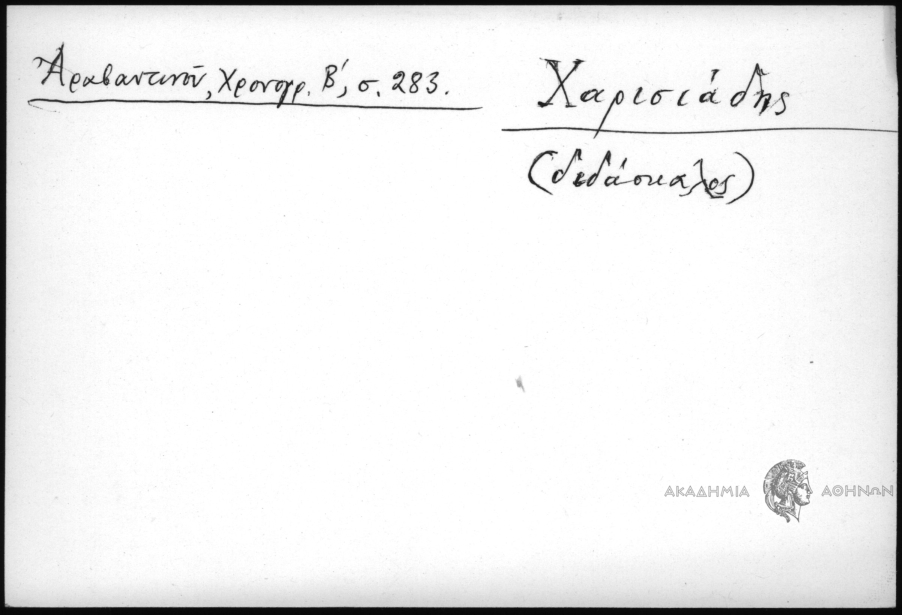 Ἀραβαντινοῦ, Χρονογρ. Β', σ. 283.
Χαρισιάδης
(διδάσκαλος)
ΑΚΑΔΗΜΙΑ ΑΘΗΝΩΝ